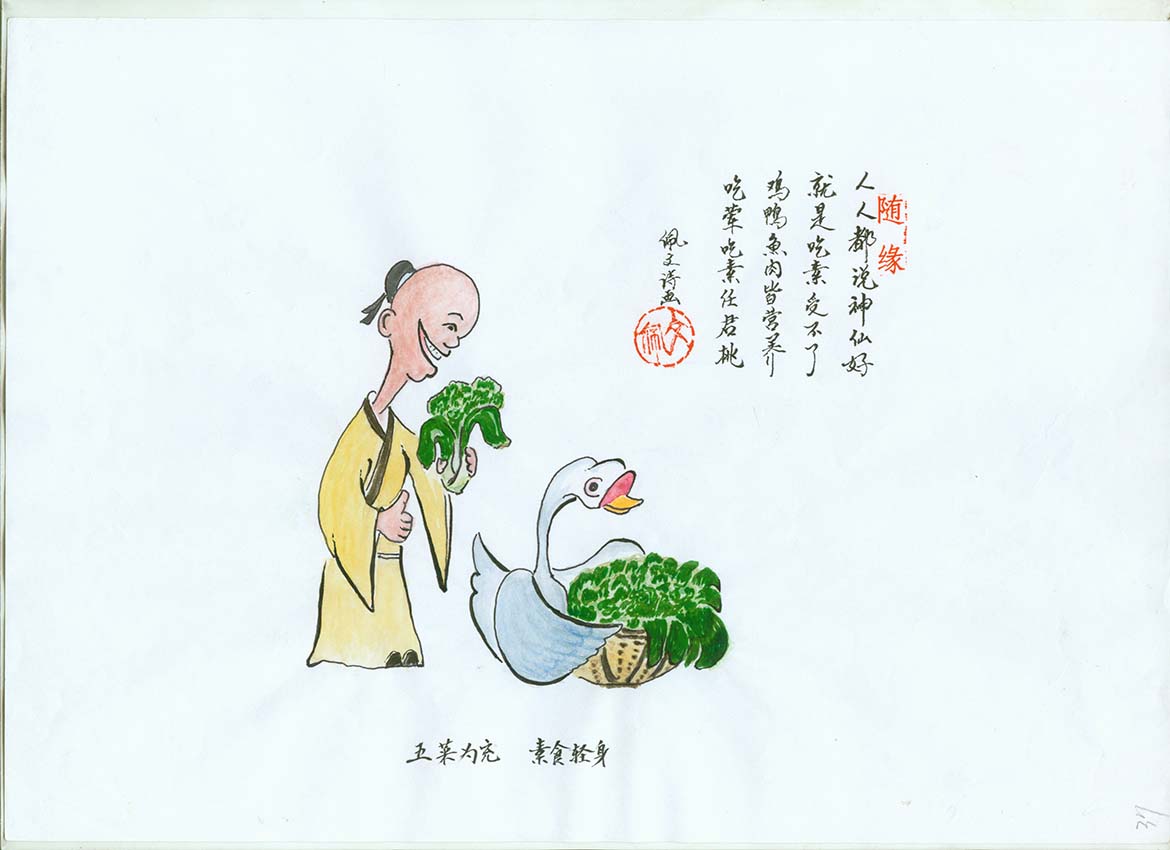 随缘
人人都说神仙好
就是吃素受不了
鸡鸭鱼肉皆营养
吃荤吃素任君挑
佩文诗画
佩文
五菜为充 素食轻身
37